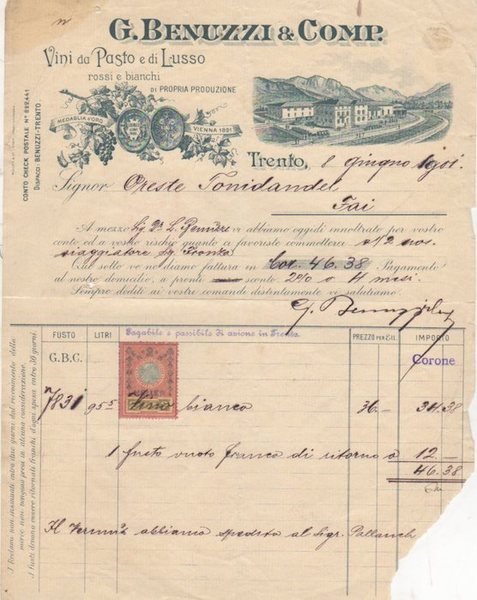 G. BENUZZI & COMP.
Vini da Pasto e di Lusso
rossi e bianchi
DI PROPRIA PRODUZIONE
MEDAGLIA D'ORO
VIENNA 1891
CONTO CHECK POSTALE Nº
DISPACCI: BENUZZI-TRENTO
Trento, 8 Giugno 1901.
Signor Oreste Tonidandel
Fai
A mezzo Sig. L. vi abbiamo oggidì innoltrato per vostro
conto ed a vostro rischio quanto ci favoriste commettere a 1/2 nos.
viaggiatore Sg.
Del sello ve ne diamo fattura in Cor. 46.38 Pagamento
al nostro domicilio, a pronti sconto 2% o 4 mesi.
Sempre dediti ai vostri comandi distintamente vi salutiamo.
G. Benuzzi
FUSTO LITRI Pagabile e possibile di azione in Trento. PREZZO PER IMPORTO
G.B.C. Corone
7831 95 5 Vino bianco 36.- 34.38
1 fusto vuoto franco di ritorno a 12.-
46.38
Il Vermut abbiamo spedito al Sigr.
I Reclami non avanzati entro due giorni dal ricevimento della
merce non vengono presi in alcuna considerazione.
I fusti devono essere ritornati franchi d'ogni spesa entro 30 giorni.